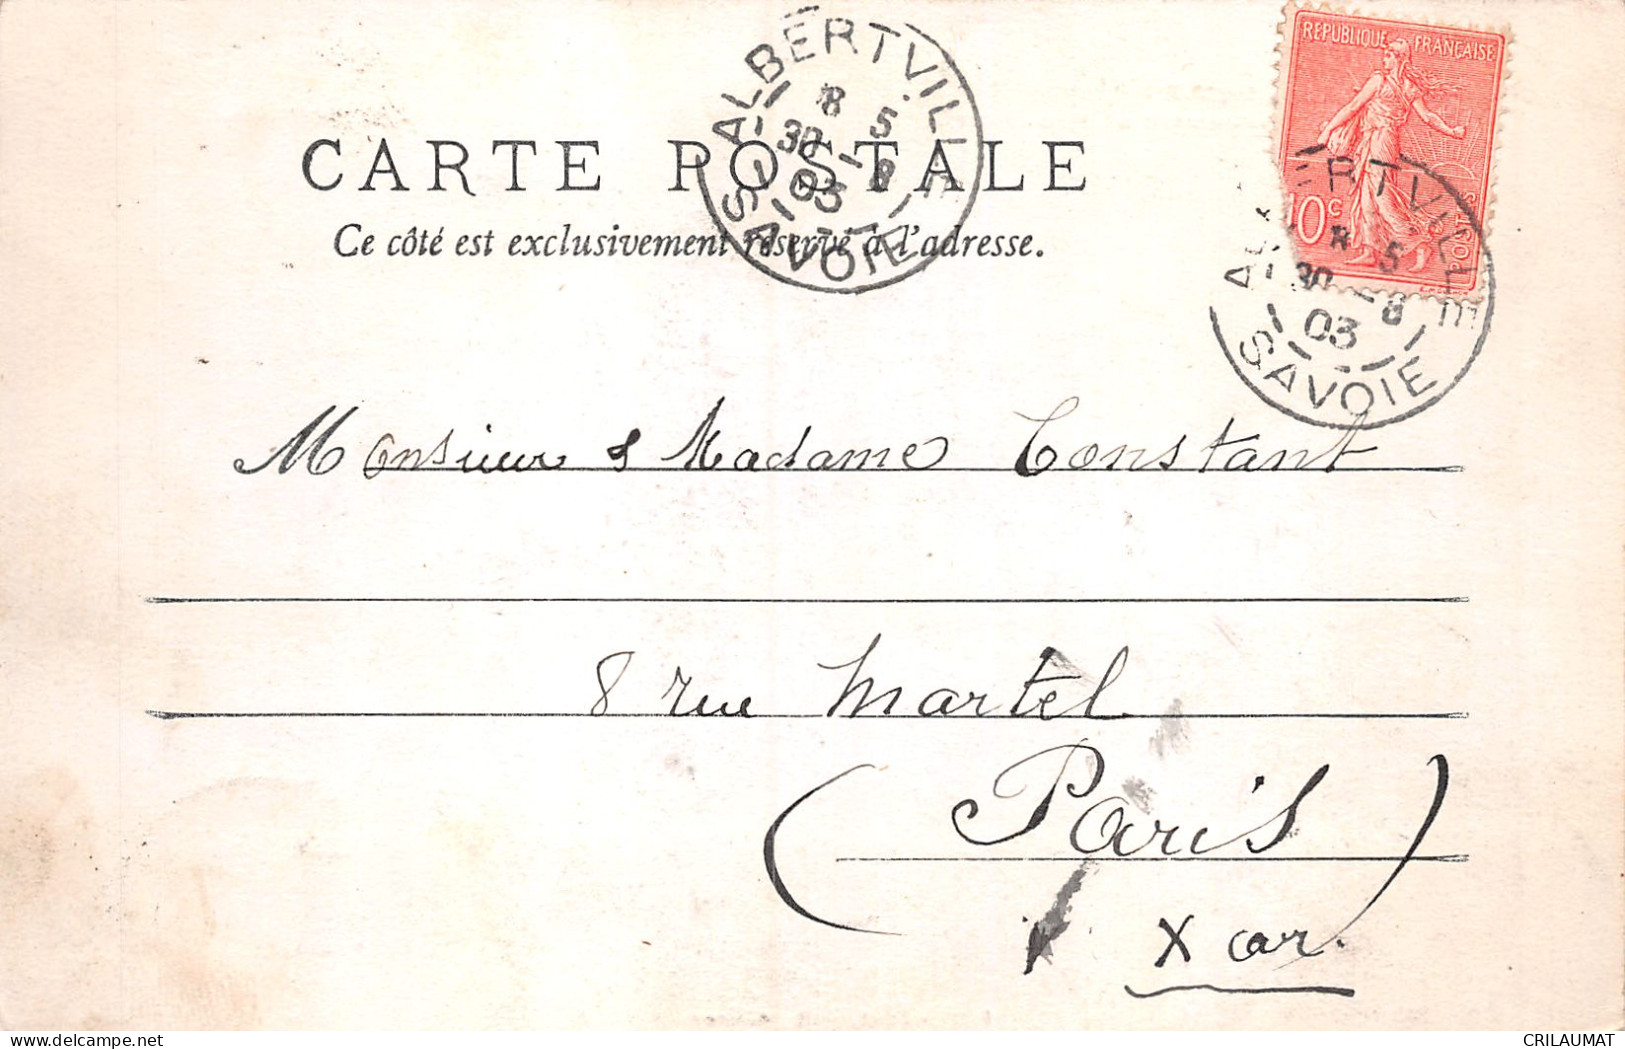 ALBERTVILLE
8 5
30 - 8
03
SAVOIE
REPUBLIQUE FRANÇAISE
10 c
POSTES
CARTE POSTALE
Ce côté est exclusivement réservé à l'adresse.
ALBERTVILLE
8 5
30 - 8
03
SAVOIE
Monsieur & Madame Constant
8 rue Martel
(Paris)
X ar.
CRILAUMAT